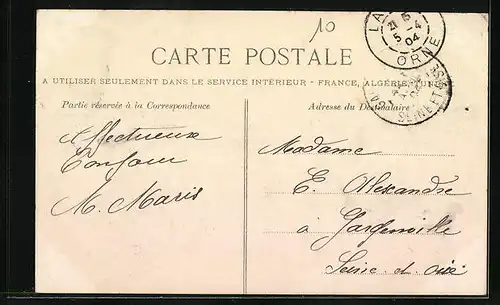 10
LA
21 5
5 -4
04
ORNE
CARTE POSTALE
A UTILISER SEULEMENT DANS LE SERVICE INTÉRIEUR - FRANCE, ALGÉRIE, TUN
SEINE ET
Partie réservée à la Correspondance
Adresse du Destinataire
Affectueux
Bonjour
M. Maris
Madame
E. Alexandre
à Gargenville
Seine-et-Oise